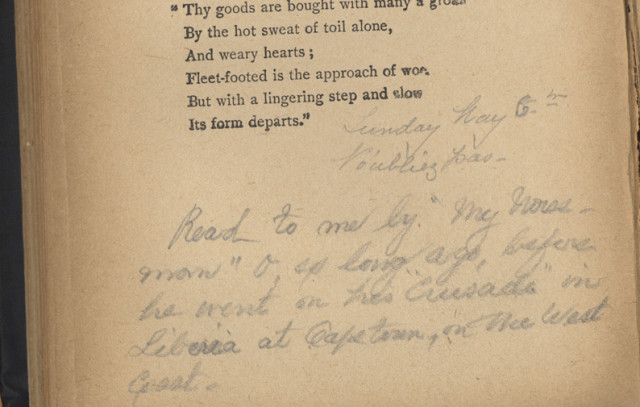 “ Thy goods are bought with many a groan
By the hot sweat of toil alone,
And weary hearts ;
Fleet-footed is the approach of woe,
But with a lingering step and slow
Its form departs.”
Sunday May 6th
N'oubliez pas—
Read to me by "My Norse-
man" O, so long ago, before
he went on his "Crusade" in
Liberia at Cape town, on the West
Coast—